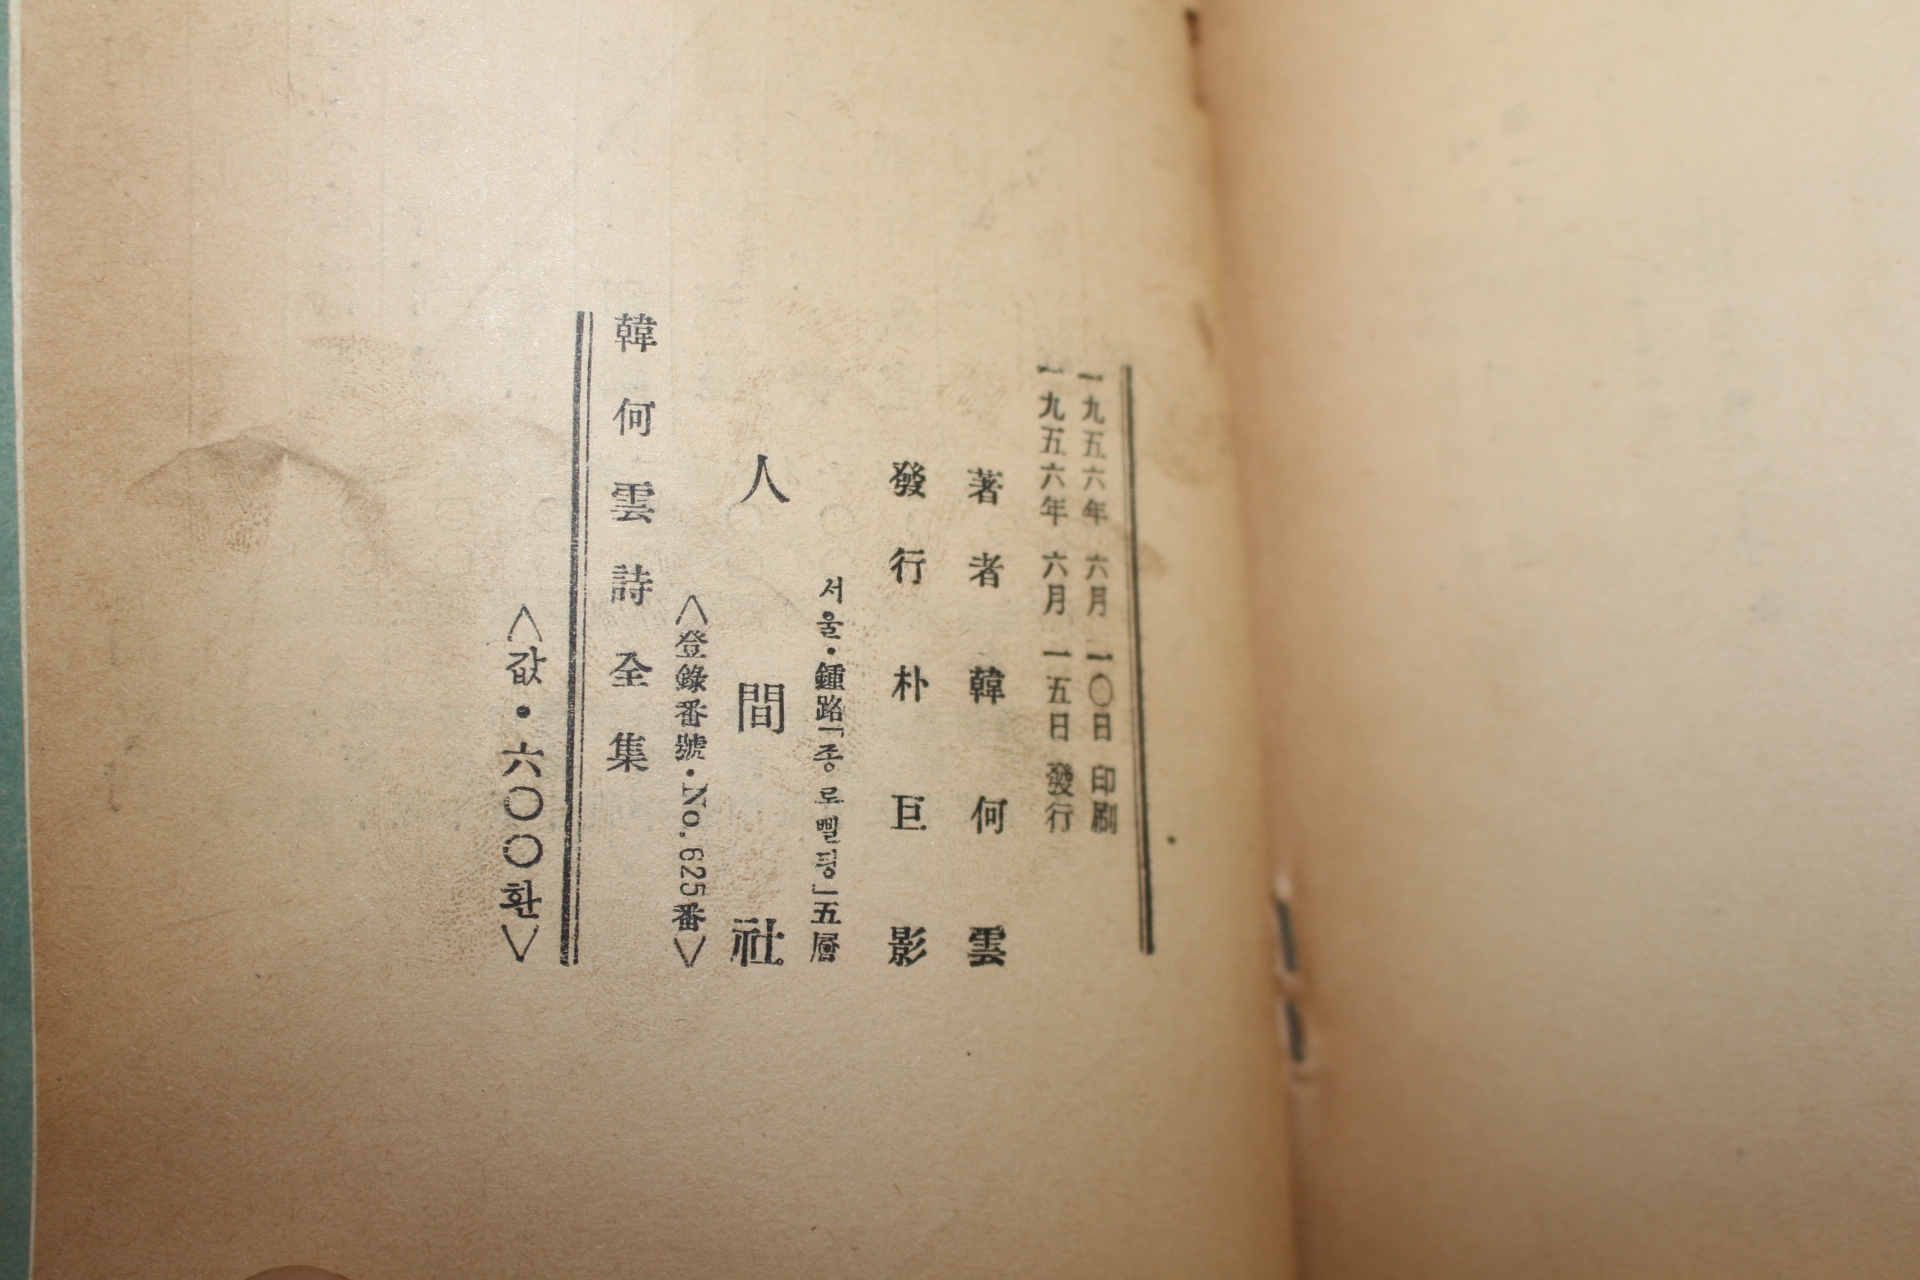 一九五六年 六月 一〇日 印刷
一九五六年 六月 一五日 發行
著者 韓何雲
發行 朴巨影
서울·鍾路「종로삘딩」五層
人間社
<登錄番號·No.625番>
韓何雲詩全集
<값·六〇〇환>